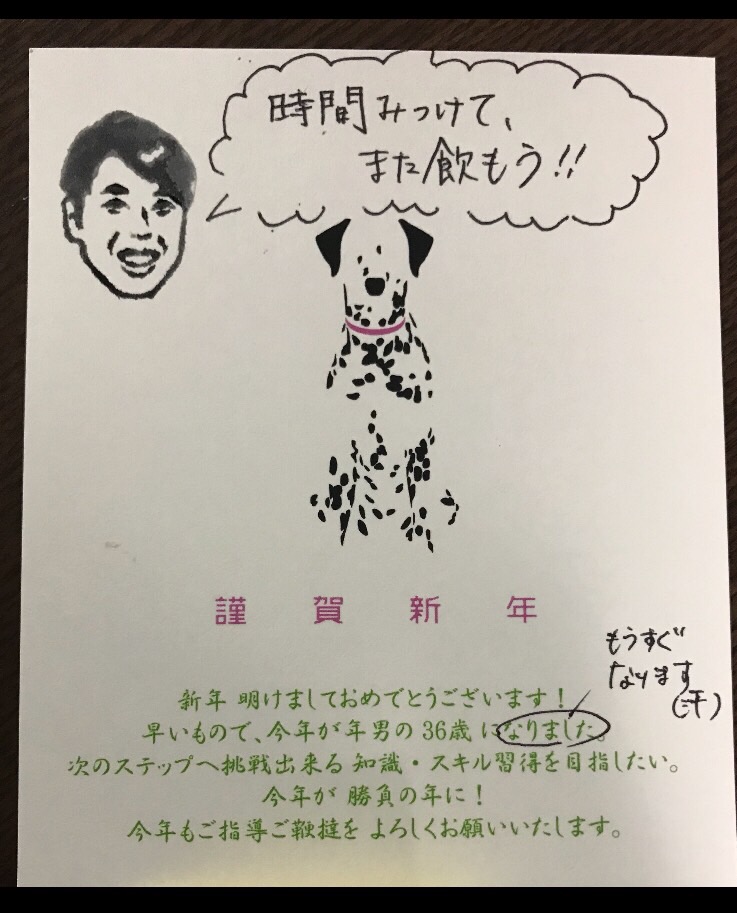 時間みつけて、
また飲もう!!
謹賀新年
もうすぐ
なります
(汗)
新年 明けましておめでとうございます!
早いもので、今年が年男の 36歳 になりました。
次のステップへ挑戦出来る 知識・スキル習得を目指したい。
今年が 勝負の年に!
今年もご指導ご鞭撻を よろしくお願いいたします。